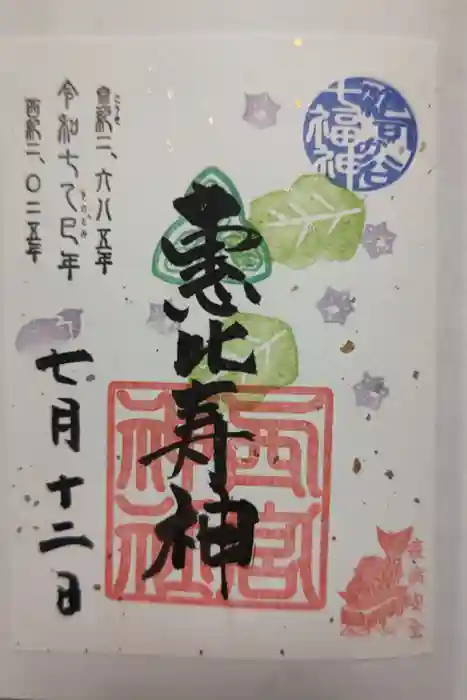 七福神
惠比寿神
西宮
神社
皇紀二、六八五年
こうき
令和七乙巳年
きのとみ
西紀二、〇二五年
七月十二日